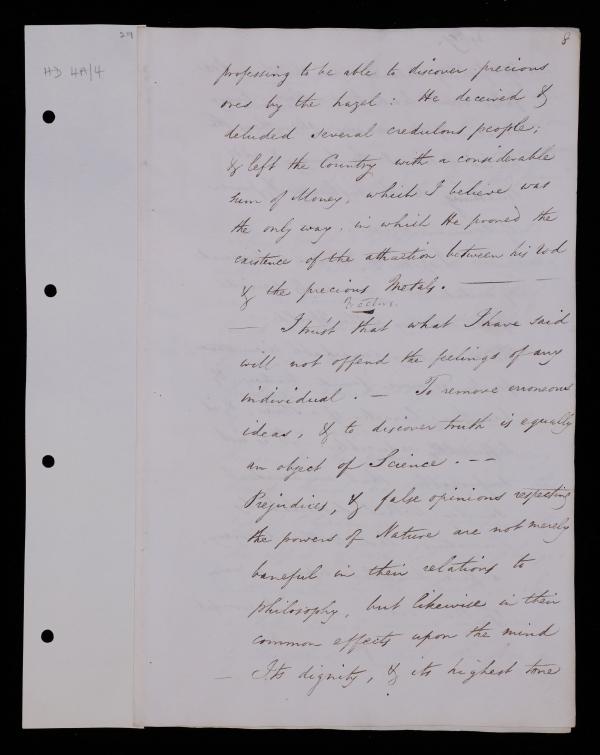 29
8
HD 4A/4
professing to be able to discover precious
ores by the hazel: He deceived &
deluded several credulous people;
& left the Country with a considerable
sum of Money, which I believe was
the only way, in which He proved the
existence of the attraction between his rod
& the precious Metals. —
— I trust that what I have said
will not offend the feelings of any
individual. — To remove erroneous
ideas, & to discover truth is equally
an object of Science. — —
Prejudices, & false opinions respecting
the powers of Nature are not merely
baneful in their relations to
philosophy, but likewise in their
common effects upon the mind
— Its dignity, & its highest tone